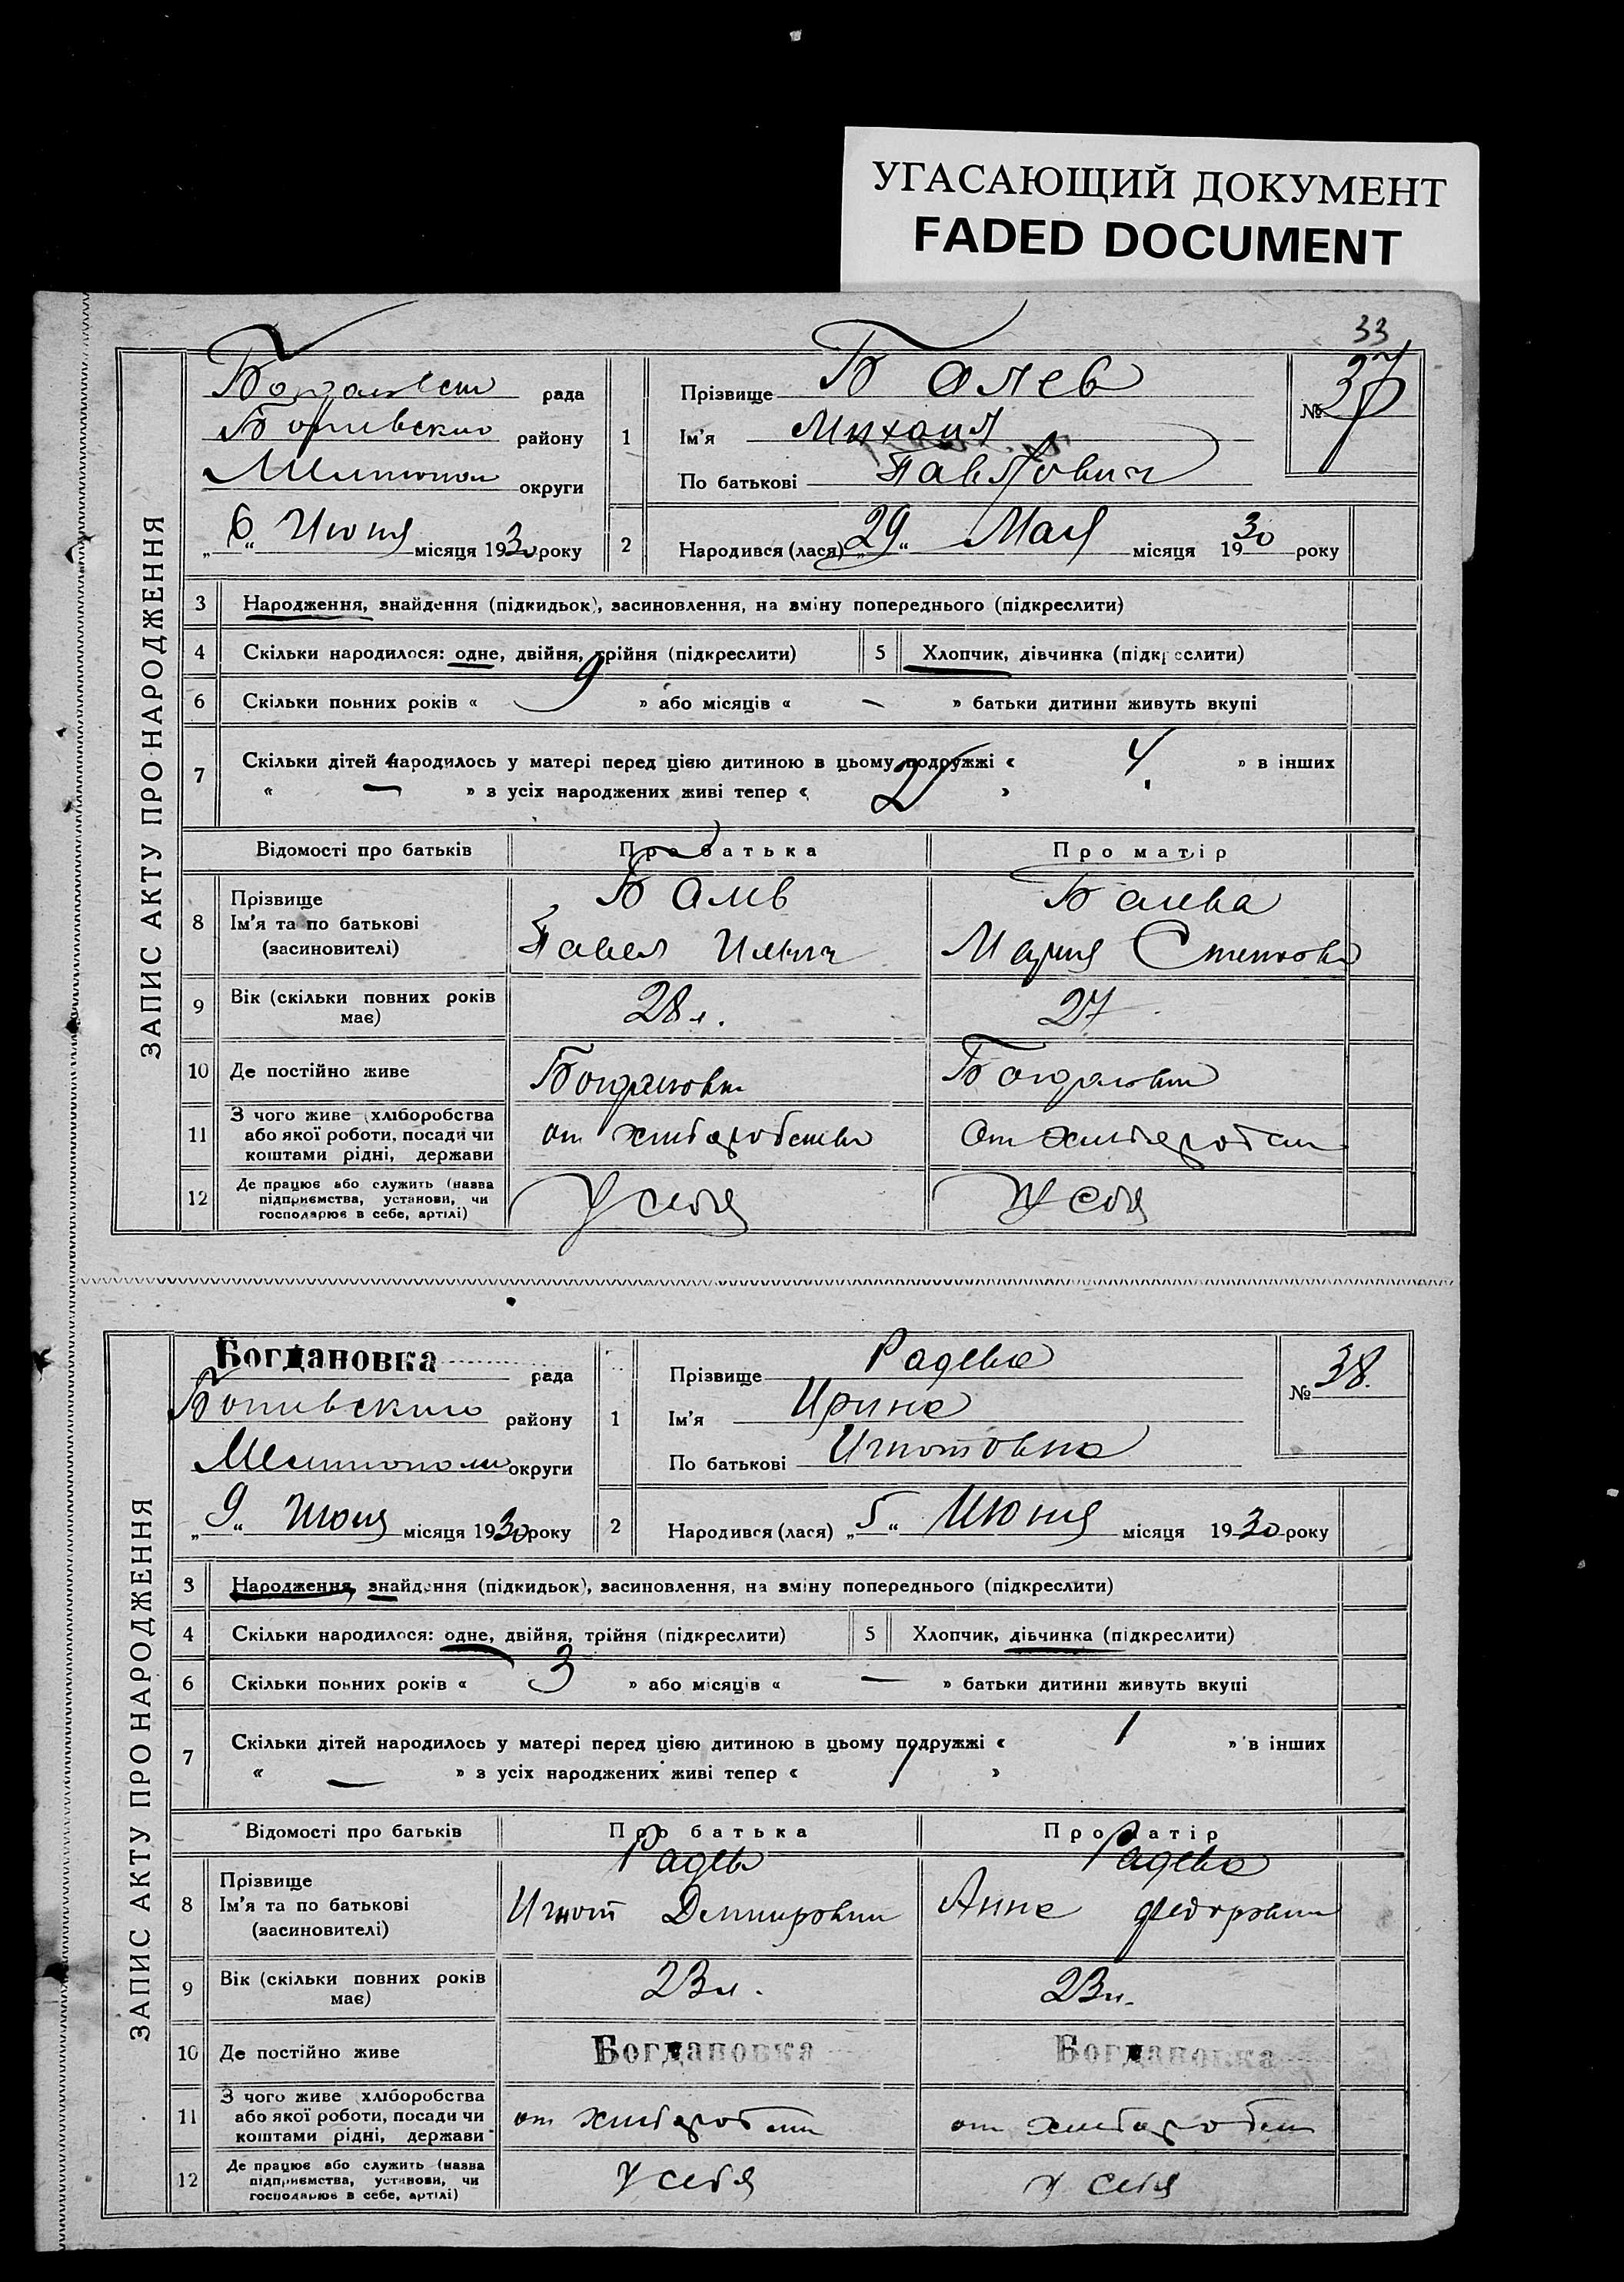 УГАСАЮЩИЙ ДОКУМЕНТ
FADED DOCUMENT
33
ЗАПИС АКТУ ПРО НАРОДЖЕННЯ
рада
району
Мелитопол округи
„6“ Июня місяця 1930 року
1
Прізвище Балев
Ім'я Михаил
По батькові Павлович
№ 37
2
Народився (лася) „29“ Мая місяця 1930 року
3 Народження, знайдення (підкидьок), засиновлення, на зміну попереднього (підкреслити)
4 Скільки народилося: одне, двійня, трійня (підкреслити) 5 Хлопчик, дівчинка (підкреслити)
6 Скільки повних років « 9 » або місяців « — » батьки дитини живуть вкупі
7 Скільки дітей народилось у матері перед цією дитиною в цьому подружжі « 4 » в інших
« — » з усіх народжених живі тепер « 2 »
Відомості про батьків Про батька Про матір
8 Прізвище
Ім'я та по батькові
(засиновителі)
Балев
Павел Ильич
Балева
Мария
9 Вік (скільки повних років має) 28 л. 27
10 Де постійно живе Богдановка Богдановка
11 З чого живе (хліборобства
або якої роботи, посади чи
коштами рідні, держави
от от
12 Де працює або служить (назва
підприємства, установи, чи
господарює в себе, артілі)
У себя У себя
ЗАПИС АКТУ ПРО НАРОДЖЕННЯ
Богдановка рада
району
Мелитополи округи
„9“ Июня місяця 1930 року
1
Прізвище Радева
Ім'я Ирина
По батькові Игнатовна
№ 38.
2
Народився (лася) „5“ Июня місяця 1930 року
3 Народження, знайдення (підкидьок), засиновлення, на зміну попереднього (підкреслити)
4 Скільки народилося: одне, двійня, трійня (підкреслити) 5 Хлопчик, дівчинка (підкреслити)
6 Скільки повних років « 3 » або місяців « — » батьки дитини живуть вкупі
7 Скільки дітей народилось у матері перед цією дитиною в цьому подружжі « 1 » в інших
« — » з усіх народжених живі тепер « 1 »
Відомості про батьків Про батька Про матір
8 Прізвище
Ім'я та по батькові
(засиновителі)
Радев
Игнат
Радева
Анна
9 Вік (скільки повних років має) 23 л. 23 л.
10 Де постійно живе Богдановка Богдановка
11 З чого живе (хліборобства
або якої роботи, посади чи
коштами рідні, держави
от от
12 Де працює або служить (назва
підприємства, установи, чи
господарює в себе, артілі)
У себя У себя